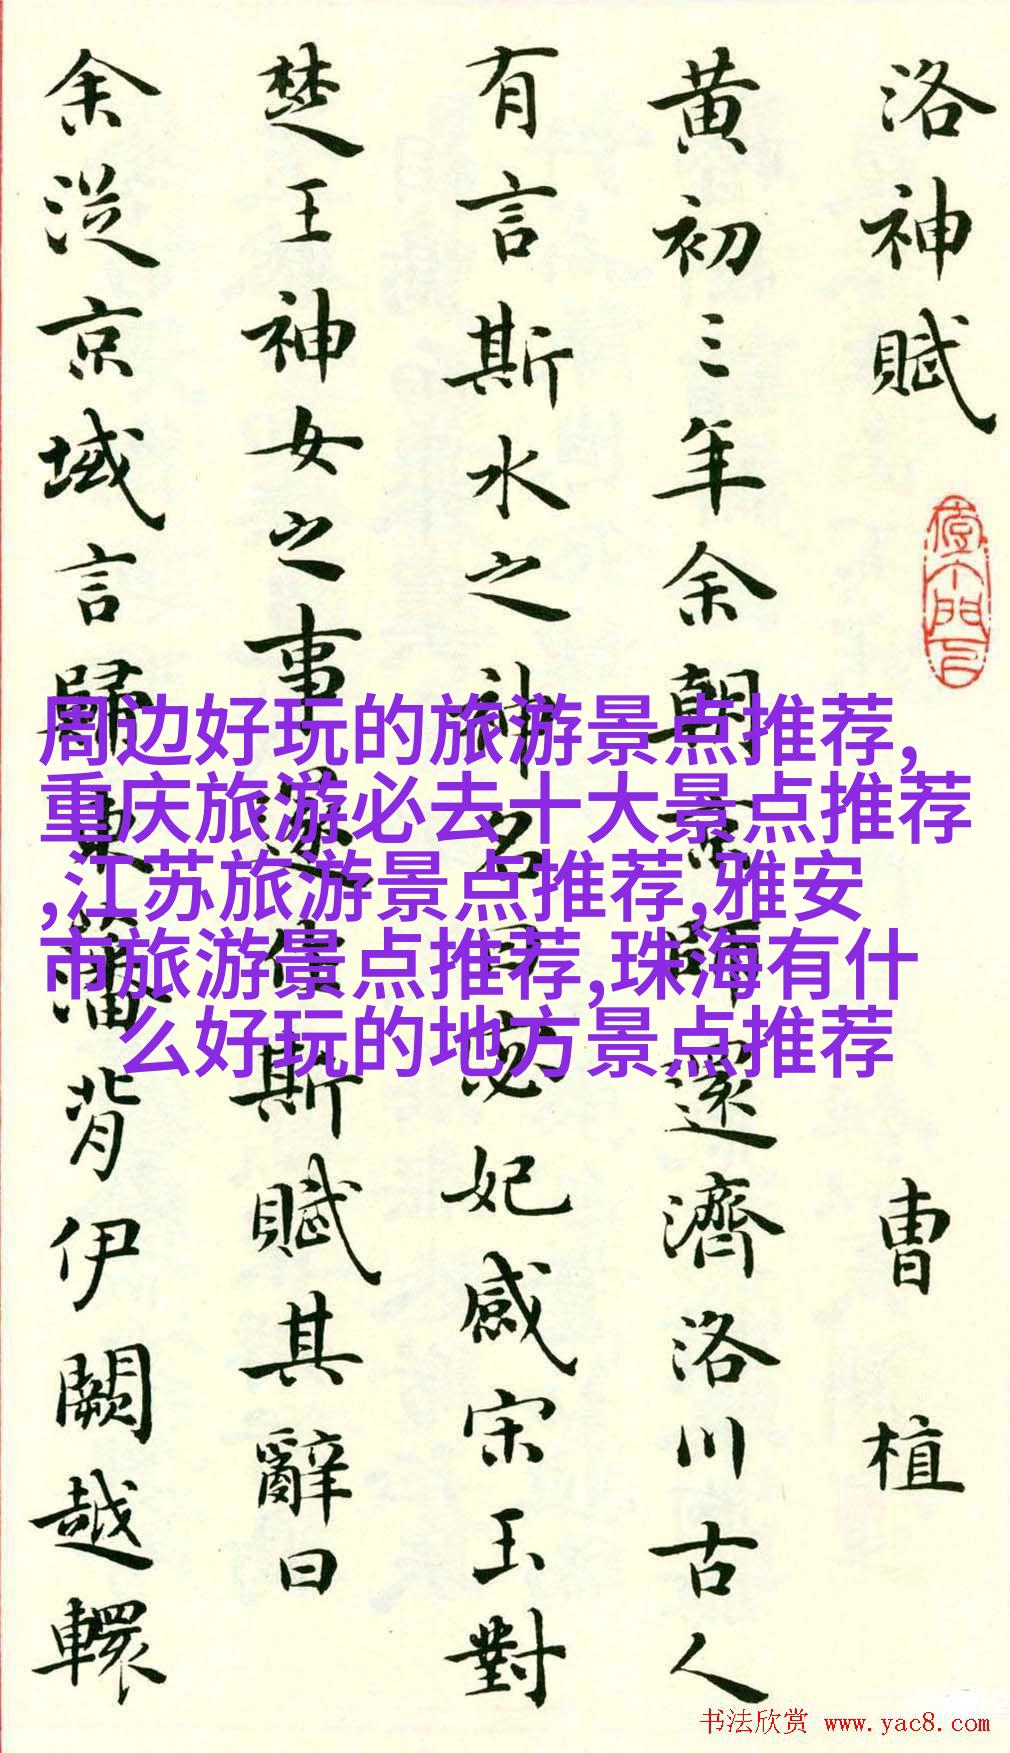 洛神賦 曹植
黄初三年余朝京師還濟洛川古人
有言斯水之神名曰宓妃感宋玉對
楚王神女之事遂作斯賦其辭曰
余從京域言歸東藩背伊闕越轘
周边好玩的旅游景点推荐,
重庆旅游必去十大景点推荐
,江苏旅游景点推荐,雅安
市旅游景点推荐,珠海有什
么好玩的地方景点推荐
书法欣赏 www.yac8.com